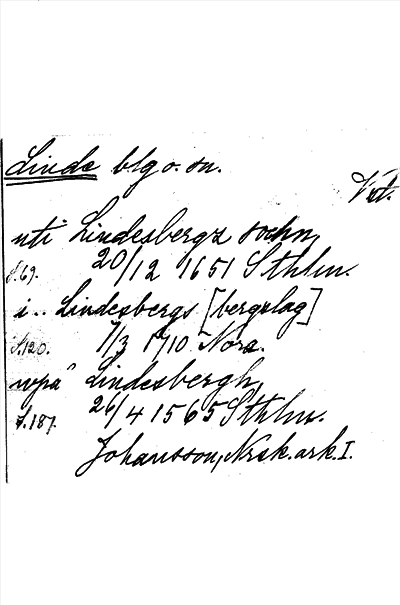 Linde blg o. sn.
Vet.
uti Lindesbergz sochn,
S. 69. 20/12 1651 Sthlm.
i.. Lindesbergs [bergslag]
S. 120. 7/3 1710 Nora.
wpå Lindesbergh,
S. 187. 26/4 1565 Sthlm.
Johansson, Nrsk. ark. I.